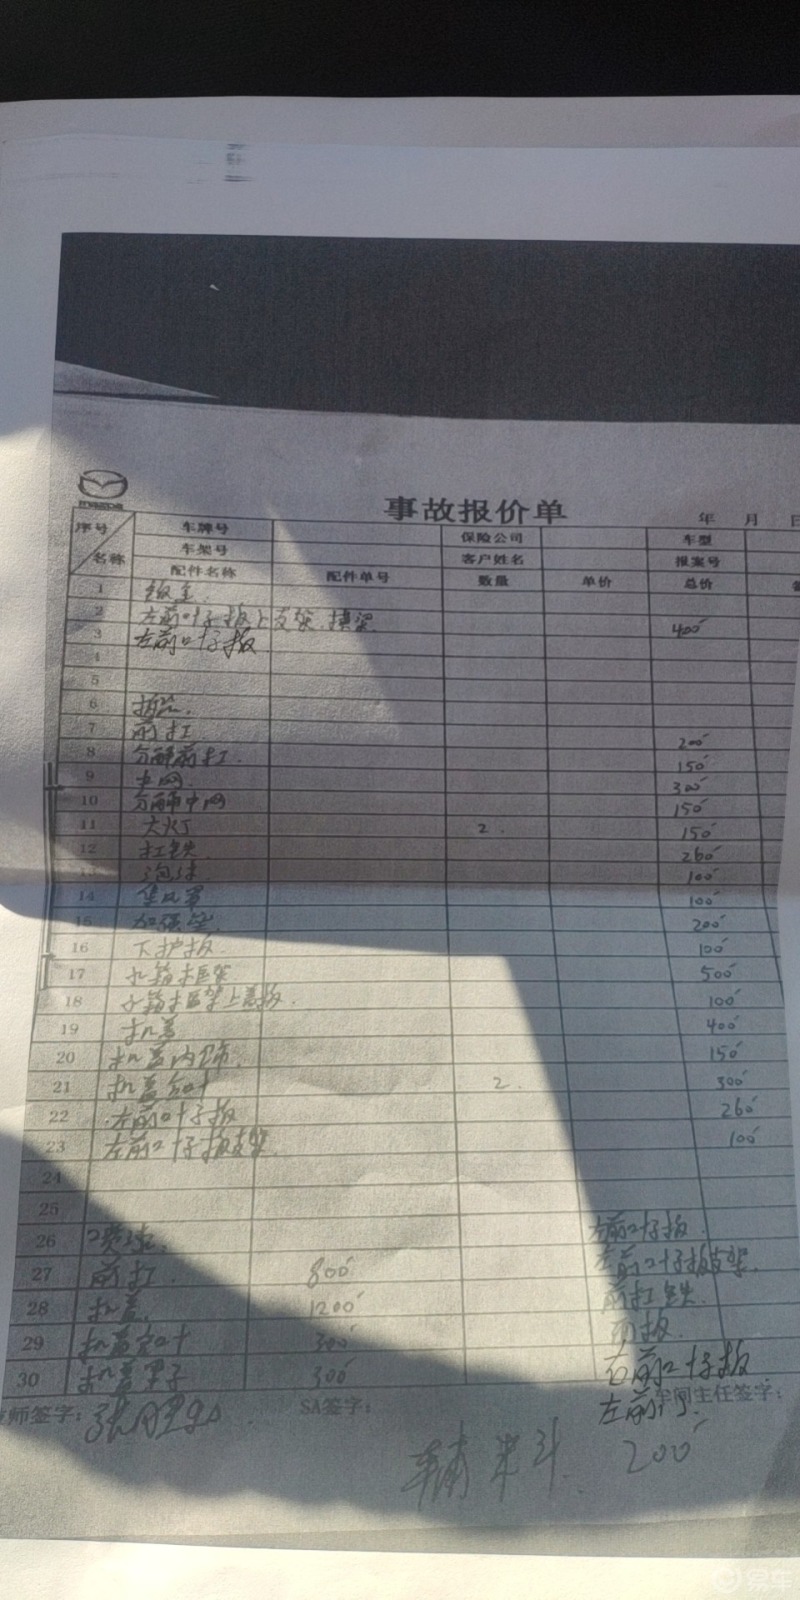 mazda
事故报价单
年 月 日
序号 车牌号 保险公司 车型
车架号 客户姓名 报案号
名称 配件名称 配件单号 数量 单价 总价
1 钣金
2 左前叶子板上支架.横梁 400
3 左前叶子板
4
5
6 拆装
7 前杠 200
8 分解前杠 150
9 中网 300
10 分解中网 150
11 大灯 2 150
12 杠铁 260
13 泡沫 100
14 集风罩 100
15 加强梁 200
16 下护板 100
17 水箱框架 500
18 水箱框架上盖板 100
19 机盖 400
20 机盖内饰 150
21 机盖合叶 2 300
22 左前叶子板 260
23 左前叶子板支架 100
24
25
26 喷漆 左前叶子板
27 前杠 800 左前叶子板支架
28 机盖 1200 前杠铁
29 机盖合叶 300
30 机盖里子 300 右前叶子板
师签字: SA签字: 左前门 车间主任签字:
辅料 200
易车